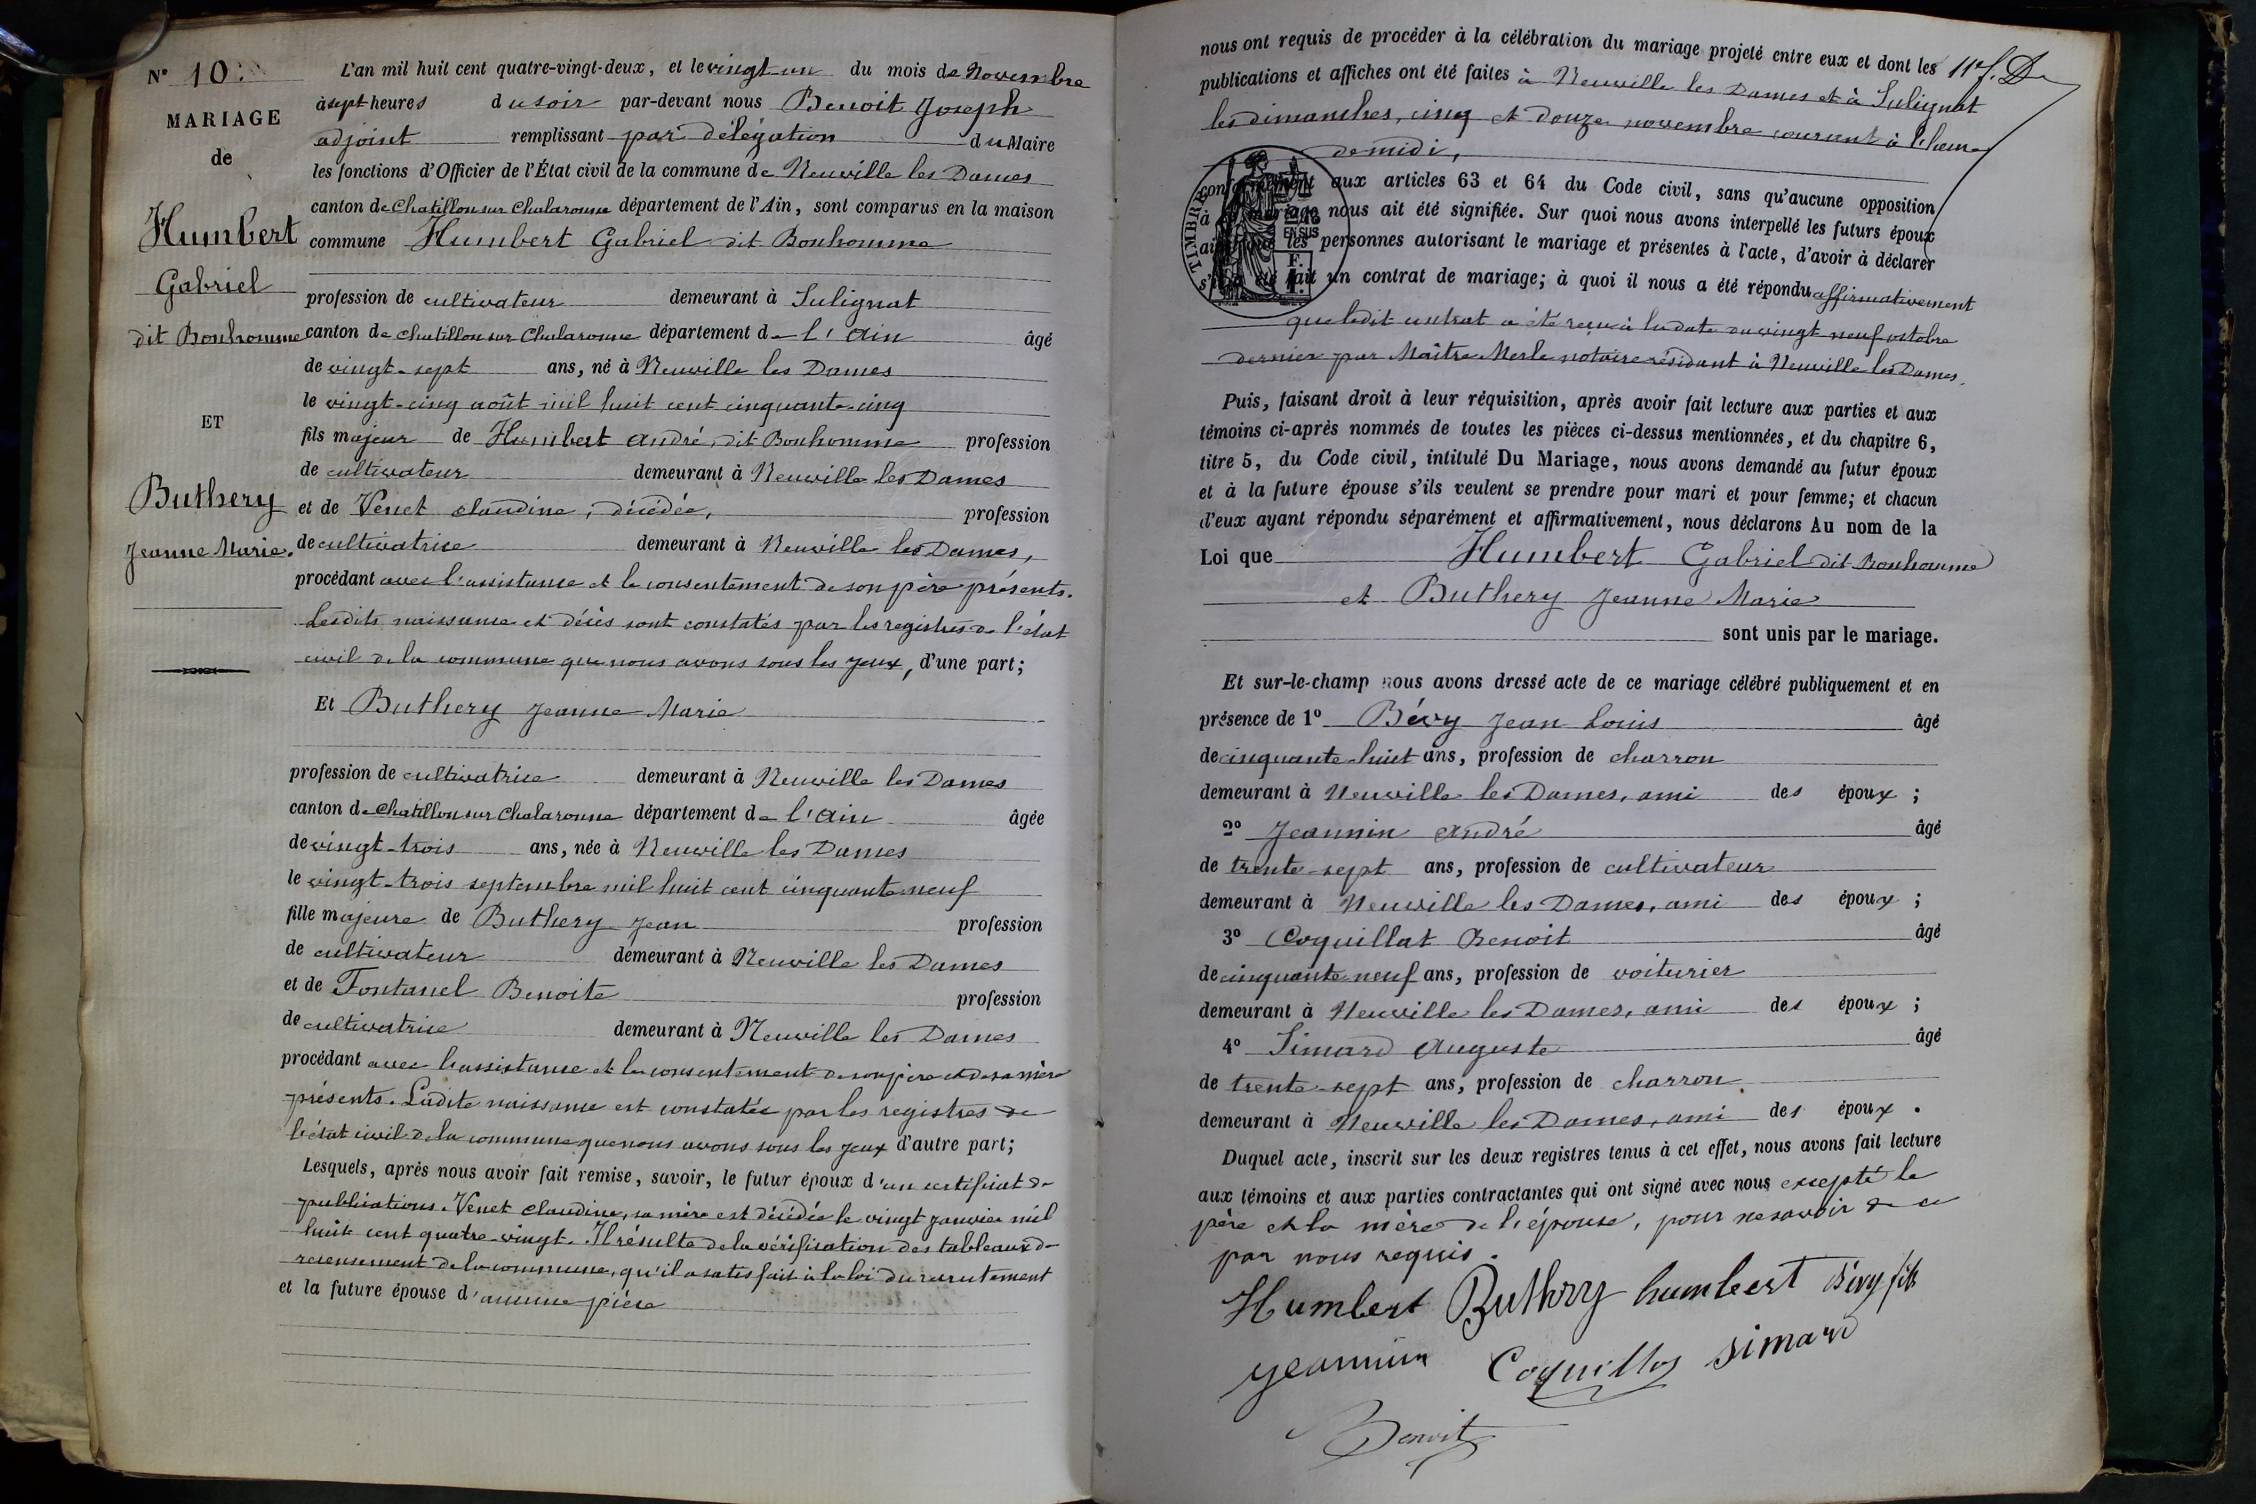 N° 10
MARIAGE
de
Humbert
Gabriel
dit Bonhomme
ET
Buthery
Jeanne Marie.
L'an mil huit cent quatre-vingt-deux, et le vingt un du mois de Novembre
à sept heures du soir par-devant nous Benoit Joseph
adjoint remplissant par délégation du Maire
les fonctions d'Officier de l'État civil de la commune de Neuville les Dames
canton de Chatillon sur Chalaronne département de l'Ain, sont comparus en la maison
commune Humbert Gabriel dit Bonhomme
profession de cultivateur demeurant à Sulignat
canton de Chatillon sur Chalaronne département de l'Ain âgé
de vingt-sept ans, né à Neuville les Dames
le vingt-cinq août mil huit cent cinquante-cinq
fils majeur de Humbert André, dit Bonhomme profession
de cultivateur demeurant à Neuville les Dames
et de Venet claudine, décédée, profession
de cultivatrice demeurant à Neuville les Dames,
procédant avec l'assistance et le consentement de son père présents.
Lesdits naissance et décès sont constatés par les registres de l'état
civil de la commune que nous avons sous les yeux, d'une part;
Et Buthery Jeanne Marie
profession de cultivatrice demeurant à Neuville les Dames
canton de Chatillon sur Chalaronne département de l'Ain âgée
de vingt-trois ans, née à Neuville les Dames
le vingt-trois septembre mil huit cent cinquante neuf
fille majeure de Buthery Jean profession
de cultivateur demeurant à Neuville les Dames
et de Fontanel Benoite profession
de cultivatrice demeurant à Neuville les Dames
procédant avec l'assistance et le consentement de son père et de sa mère
présents. Ladite naissance est constatée par les registres de
l'état civil de la commune que nous avons sous les yeux d'autre part;
Lesquels, après nous avoir fait remise, savoir, le futur époux d'un certificat de
publications. Venet claudine, sa mère est décédée le vingt janvier mil
huit cent quatre-vingt. Il résulte de la vérification des tableaux de
recensement de la commune, qu'il a satisfait à la loi du recrutement
et la future épouse d'aucune pièce
nous ont requis de procéder à la célébration du mariage projeté entre eux et dont les
publications et affiches ont été faites à Neuville les Dames et à Sulignat
les dimanches, cinq et douze novembre courant à l'heure
de midi,
conformément aux articles 63 et 64 du Code civil, sans qu'aucune opposition
à ce mariage nous ait été signifiée. Sur quoi nous avons interpellé les futurs époux
ainsi que les personnes autorisant le mariage et présentes à l'acte, d'avoir à déclarer
s'il a été fait un contrat de mariage; à quoi il nous a été répondu affirmativement
que ledit contrat a été reçu à la date du vingt neuf octobre
dernier par Maître Merle notaire résidant à Neuville les Dames.
TIMBRE
EN SUS
Puis, faisant droit à leur réquisition, après avoir fait lecture aux parties et aux
témoins ci-après nommés de toutes les pièces ci-dessus mentionnées, et du chapitre 6,
titre 5, du Code civil, intitulé Du Mariage, nous avons demandé au futur époux
et à la future épouse s'ils veulent se prendre pour mari et pour femme; et chacun
d'eux ayant répondu séparément et affirmativement, nous déclarons Au nom de la
Loi que Humbert Gabriel dit Bonhomme
et Buthery Jeanne Marie
sont unis par le mariage.
Et sur-le-champ nous avons dressé acte de ce mariage célébré publiquement et en
présence de 1° Bévy Jean Louis âgé
de cinquante-huit ans, profession de charron
demeurant à Neuville les Dames, ami des époux ;
2° Jeannin André âgé
de trente-sept ans, profession de cultivateur
demeurant à Neuville les Dames, ami des époux ;
3° Coquillat Benoit âgé
de cinquante neuf ans, profession de voiturier
demeurant à Neuville les Dames, ami des époux ;
4° Simard Auguste âgé
de trente-sept ans, profession de charron.
demeurant à Neuville les Dames, ami des époux .
Duquel acte, inscrit sur les deux registres tenus à cet effet, nous avons fait lecture
aux témoins et aux parties contractantes qui ont signé avec nous excepté le
père et la mère de l'épouse, pour ne savoir de ce
par nous requis.
Humbert Buthery humbert Bévy fils
jeannin Coquillat simard
Benoit